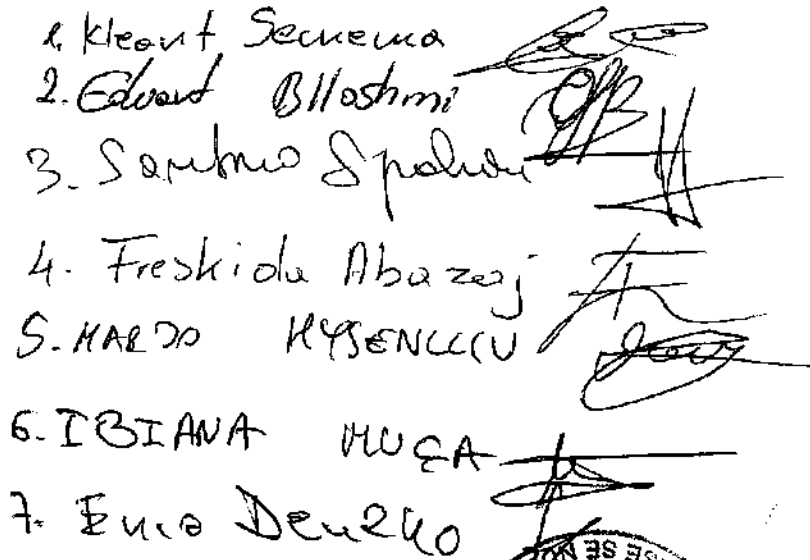 1. Kleant Semema
2. Edvart Blloshmi
3. Spahiu
4. Freskida Abazaj
5. MARDO HYSENLLIU
6. IBIANA MUÇA
7. Enia